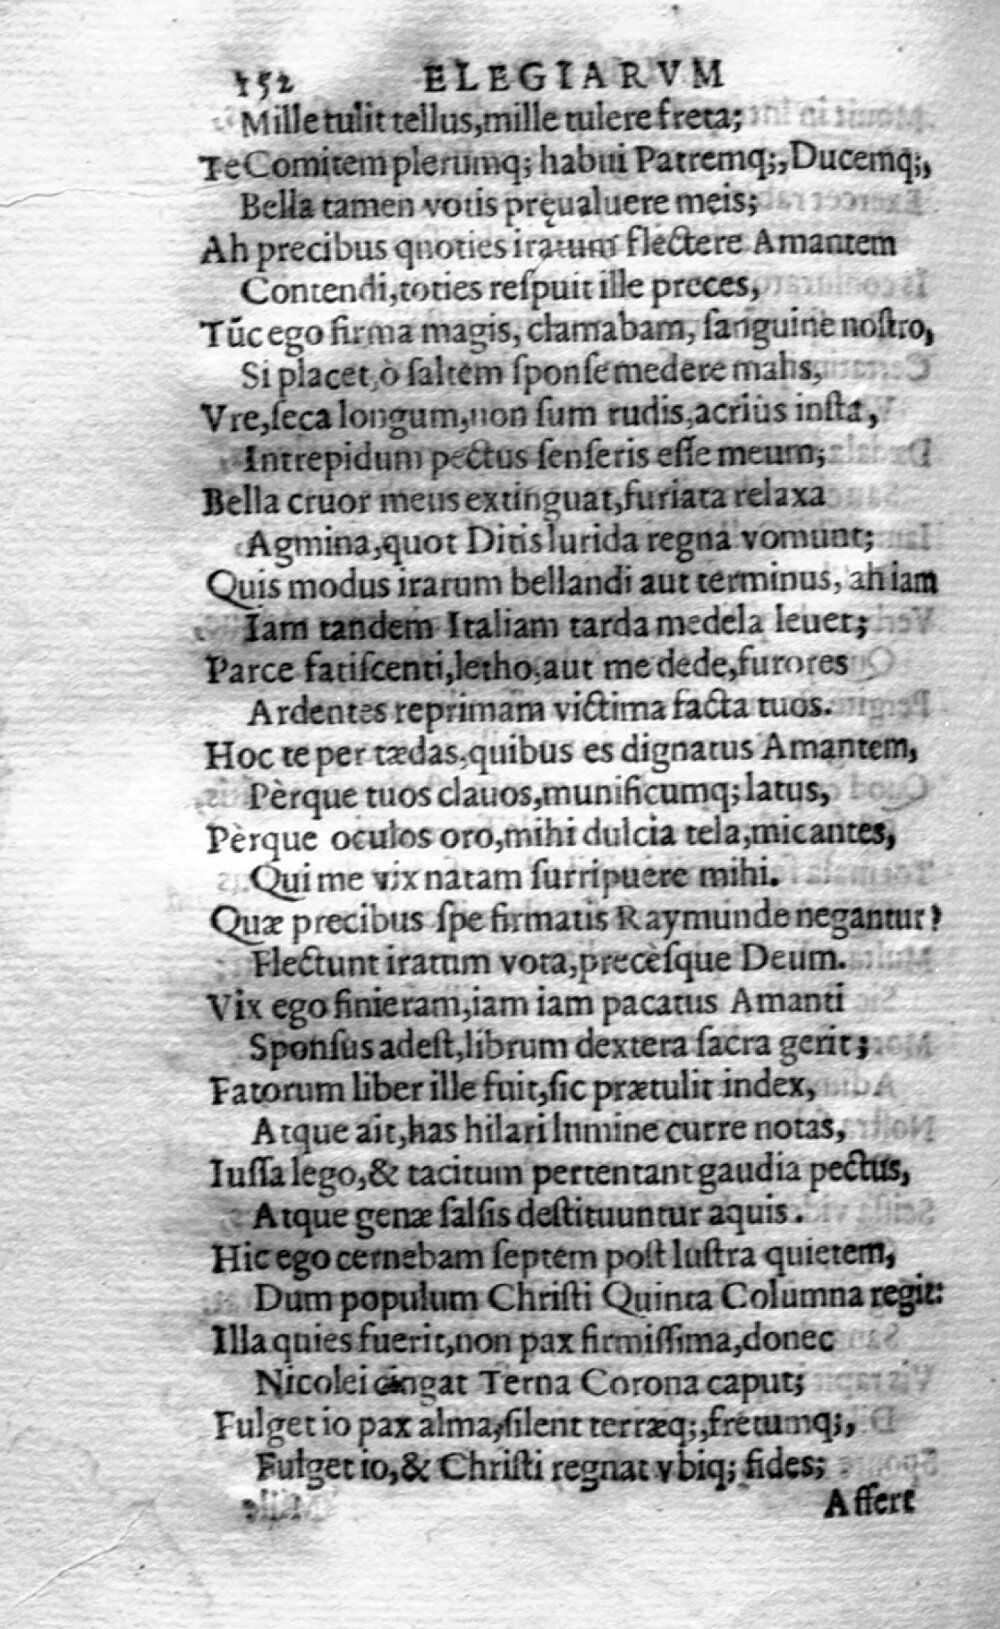 152 ELEGIARVM
Mille tulit tellus, mille tulere freta;
Te Comitem plerumq; habui Patremq;, Ducemq;,
Bella tamen votis pręualuere meis;
Ah precibus quoties iratum flectere Amantem
Contendi, toties reſpuit ille preces,
Tūc ego firma magis, clamabam, ſanguine noſtro,
Si placet, ò ſaltem ſponſe medere malis,
Vre, ſeca longum, non ſum rudis, acriùs inſta,
Intrepidum pectus ſenſeris eſſe meum;
Bella cruor meus extinguat, furiata relaxa
Agmina, quot Ditis lurida regna vomunt;
Quis modus irarum bellandi aut terminus, ah iam
Iam tandem Italiam tarda medela leuet;
Parce fatiſcenti, letho, aut me dede, furores
Ardentes reprimam victima facta tuos.
Hoc te per tædas, quibus es dignatus Amantem,
Pèrque tuos clauos, munificumq; latus,
Pèrque oculos oro, mihi dulcia tela, micantes,
Qui me vix natam ſurripuere mihi.
Quæ precibus ſpe firmatis Raymunde negantur?
Flectunt iratum vota, precèſque Deum.
Vix ego finieram, iam iam pacatus Amanti
Sponſus adeſt, librum dextera ſacra gerit;
Fatorum liber ille fuit, ſic prætulit index,
Atque ait, has hilari lumine curre notas,
Iuſſa lego, & tacitum pertentant gaudia pectus,
Atque genæ ſalſis deſtituuntur aquis.
Hic ego cernebam ſeptem poſt luſtra quietem,
Dum populum Chriſti Quinta Columna regit:
Illa quies fuerit, non pax firmiſſima, donec
Nicolei cingat Terna Corona caput;
Fulget io pax alma, ſilent terræq;, fretumq;,
Fulget io, & Chriſti regnat vbiq; fides;
Affert